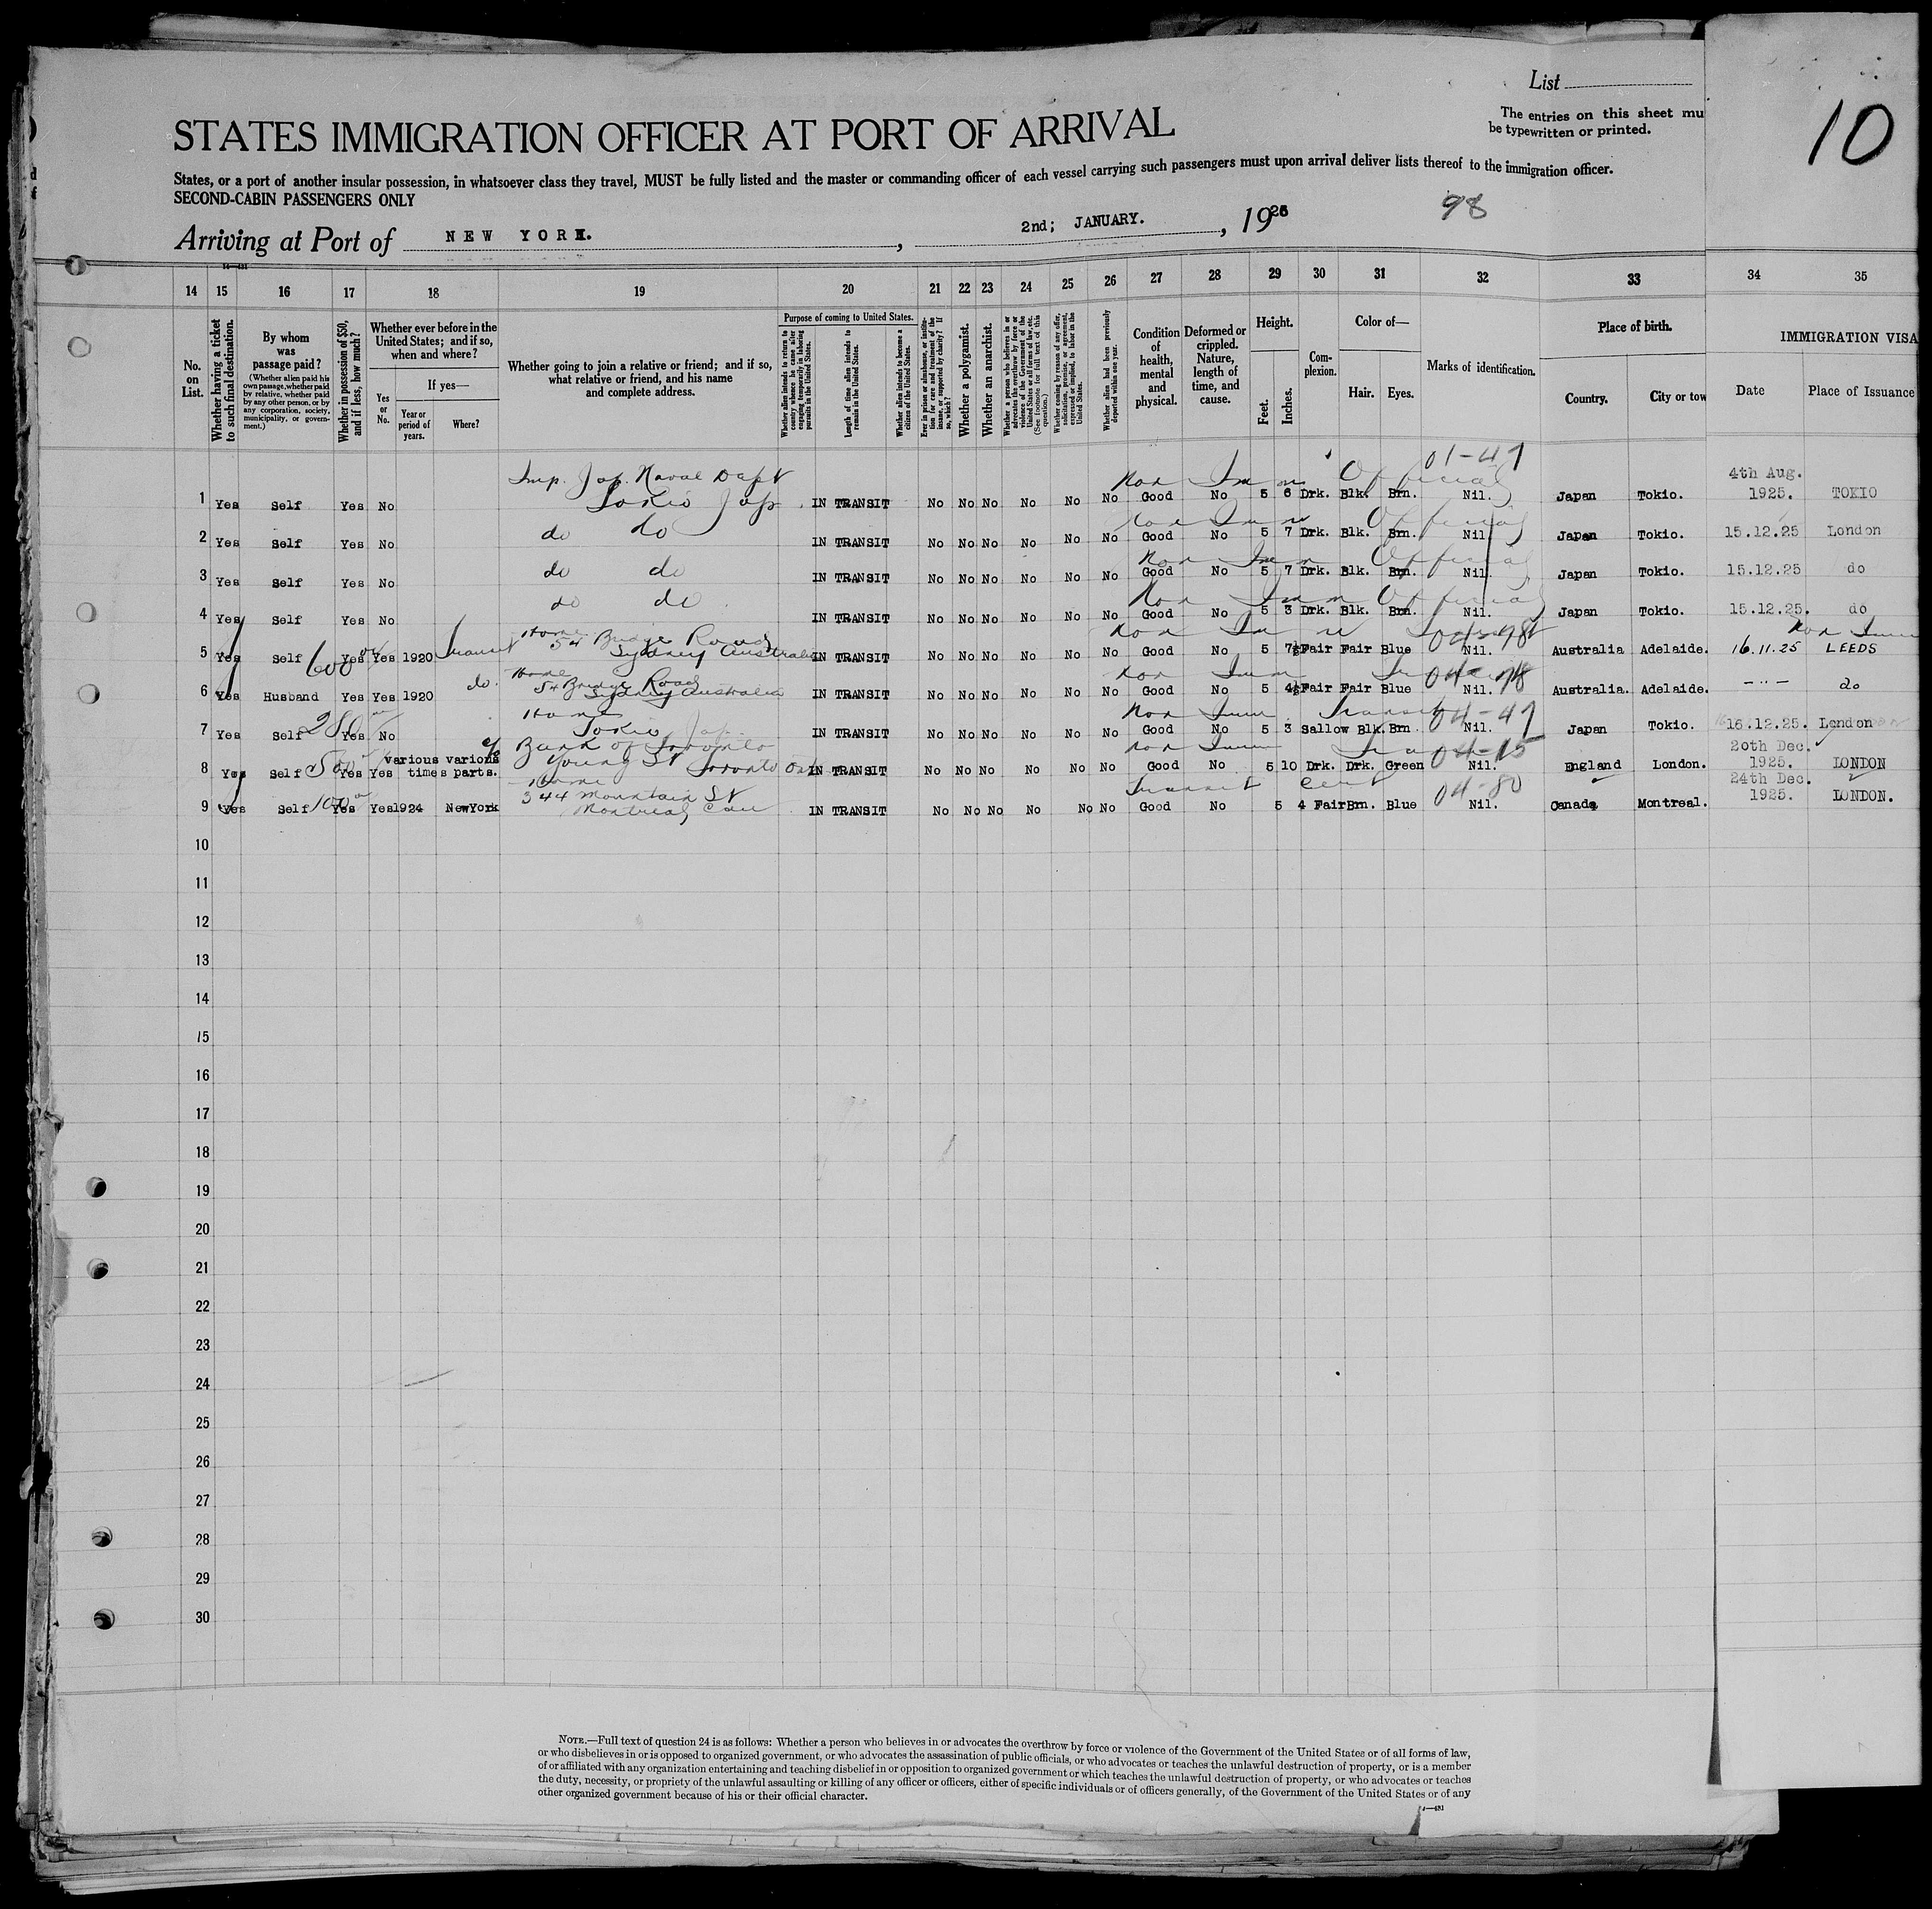 List
The entries on this sheet mu
be typewritten or printed.
10
STATES IMMIGRATION OFFICER AT PORT OF ARRIVAL
States, or a port of another insular possession, in whatsoever class they travel, MUST be fully listed and the master or commanding officer of each vessel carrying such passengers must upon arrival deliver lists thereof to the immigration officer.
SECOND-CABIN PASSENGERS ONLY
98
Arriving at Port of NEW YORK. , 2nd; JANUARY. , 1926
14 15 16 17 18 19 20 21 22 23 24 25 26 27 28 29 30 31 32 33 34 35
No. on List.
Whether having a ticket to such final destination.
By whom was passage paid?
(Whether alien paid his own passage, whether paid by relative, whether paid by any other person, or by any corporation, society, municipality, or government.)
Whether in possession of $50, and if less, how much?
Whether ever before in the United States; and if so, when and where?
Yes or No.
If yes—
Year or period of years.
Where?
Whether going to join a relative or friend; and if so, what relative or friend, and his name and complete address.
Purpose of coming to United States.
Whether alien intends to return to country whence he came after engaging temporarily in laboring pursuits in the United States.
Length of time alien intends to remain in the United States.
Whether alien intends to become a citizen of the United States.
Ever in prison or almshouse, or institution for care and treatment of the insane, or supported by charity? If so, which?
Whether a polygamist.
Whether an anarchist.
Whether a person who believes in or advocates the overthrow by force or violence of the Government of the United States or all forms of law, etc. (See footnote for full text of this question.)
Whether coming by reason of any offer, solicitation, promise, or agreement, expressed or implied, to labor in the United States.
Whether alien had been previously deported within one year.
Condition of health, mental and physical.
Deformed or crippled. Nature, length of time, and cause.
Height.
Feet. Inches.
Complexion.
Color of—
Hair. Eyes.
Marks of identification.
Place of birth.
Country. City or tow
IMMIGRATION VISA
Date Place of Issuance
Imp. Jap. Naval Dept Non Imm Official 01-47 4th Aug.
1 Yes Self Yes No Tokio Jap. IN TRANSIT No No No No No No Good No 5 6 Drk. Blk. Brn. Nil. Japan Tokio. 1925. TOKIO
Non Imm Official
2 Yes Self Yes No do do IN TRANSIT No No No No No No Good No 5 7 Drk. Blk. Brn. Nil. Japan Tokio. 15.12.25 London
Non Imm Official
3 Yes Self Yes No do do IN TRANSIT No No No No No No Good No 5 7 Drk. Blk. Brn. Nil. Japan Tokio. 15.12.25 do
Non Imm Official
4 Yes Self Yes No do do IN TRANSIT No No No No No No Good No 5 3 Drk. Blk. Brn. Nil. Japan Tokio. 15.12.25. do
Home 54 Bridge Road Non Imm Non Imm
5 Yes Self 600 Yes Yes 1920 Transit Sydney Australia IN TRANSIT No No No No No No Good No 5 7½ Fair Fair Blue Nil. Australia Adelaide. 16.11.25 LEEDS
Home 54 Bridge Road Non Imm
6 Yes Husband Yes Yes 1920 do. Sydney Australia IN TRANSIT No No No No No No Good No 5 4½ Fair Fair Blue Nil. Australia. Adelaide. -"- do
Home Non Imm Transit 04-47
7 Yes Self 280 Yes No Tokio Jap. IN TRANSIT No No No No No No Good No 5 3 Sallow Blk. Brn. Nil. Japan Tokio. 16.12.25. London
c/o Bank of Toronto Non Imm 04-15 20th Dec.
8 Yes Self 500 Yes Yes various times various parts. Young St Toronto Ont IN TRANSIT No No No No No No Good No 5 10 Drk. Drk. Green Nil. England London. 1925. LONDON
Home 344 Mountain St Transit Cert 04-80 24th Dec.
9 Yes Self 100 Yes Yes 1924 NewYork Montreal, Can IN TRANSIT No No No No No No Good No 5 4 Fair Brn. Blue Nil. Canada Montreal. 1925. LONDON.
10
11
12
13
14
15
16
17
18
19
20
21
22
23
24
25
26
27
28
29
30
NOTE.—Full text of question 24 is as follows: Whether a person who believes in or advocates the overthrow by force or violence of the Government of the United States or of all forms of law,
or who disbelieves in or is opposed to organized government, or who advocates the assassination of public officials, or who advocates or teaches the unlawful destruction of property, or is a member
of or affiliated with any organization entertaining and teaching disbelief in or opposition to organized government or which teaches the unlawful destruction of property, or who advocates or teaches
the duty, necessity, or propriety of the unlawful assaulting or killing of any officer or officers, either of specific individuals or of officers generally, of the Government of the United States or of any
other organized government because of his or their official character.